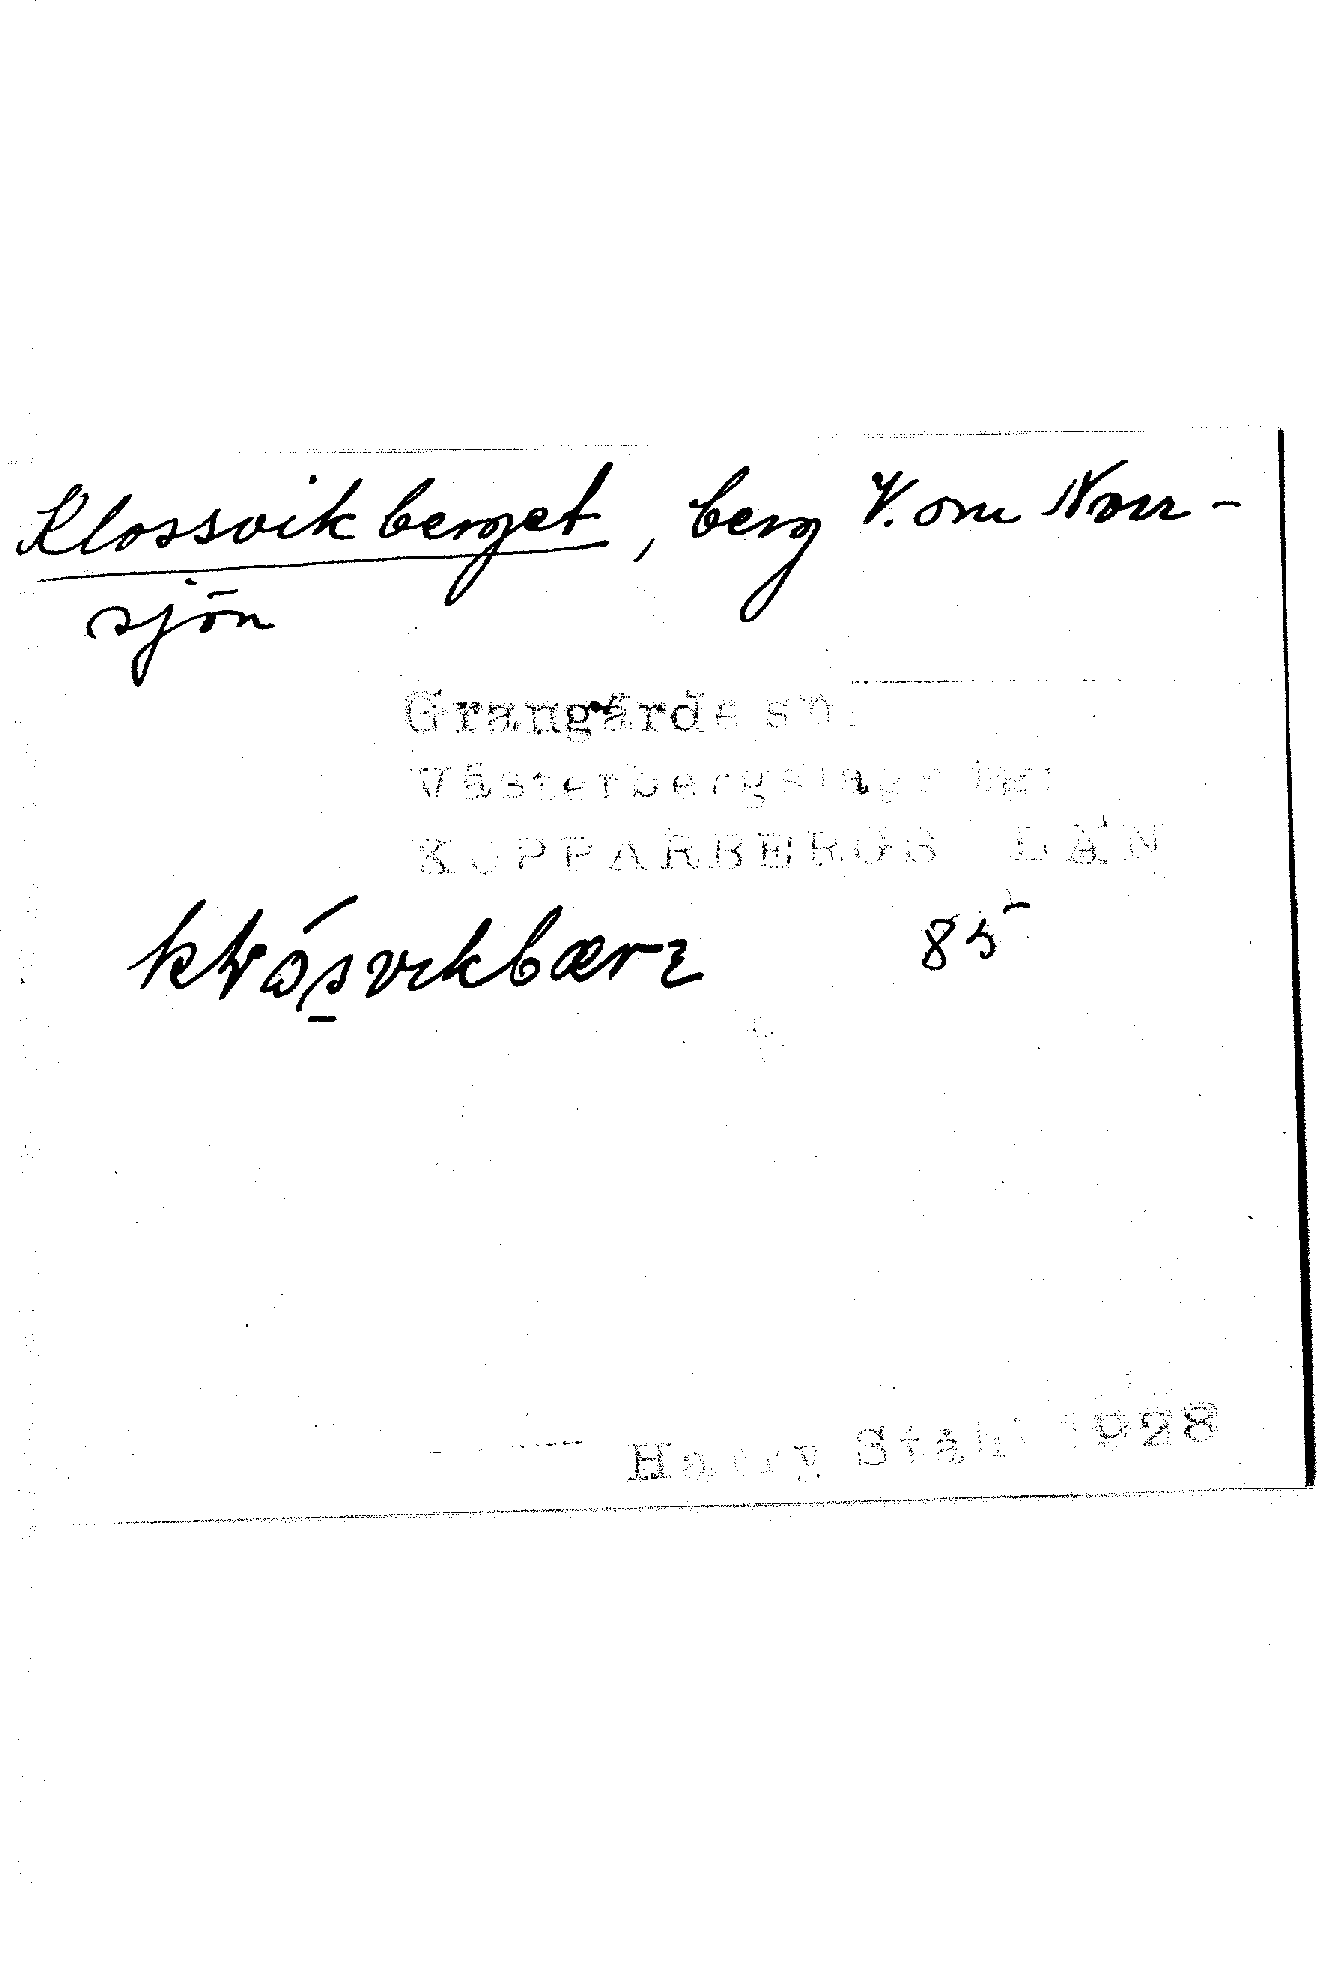 Klossvikberget, berg V. om Norr-
sjön
Grangärde sn.
Västerbergslags
KOPPARBERGS LÄN
85
Harry Ståhl 1928